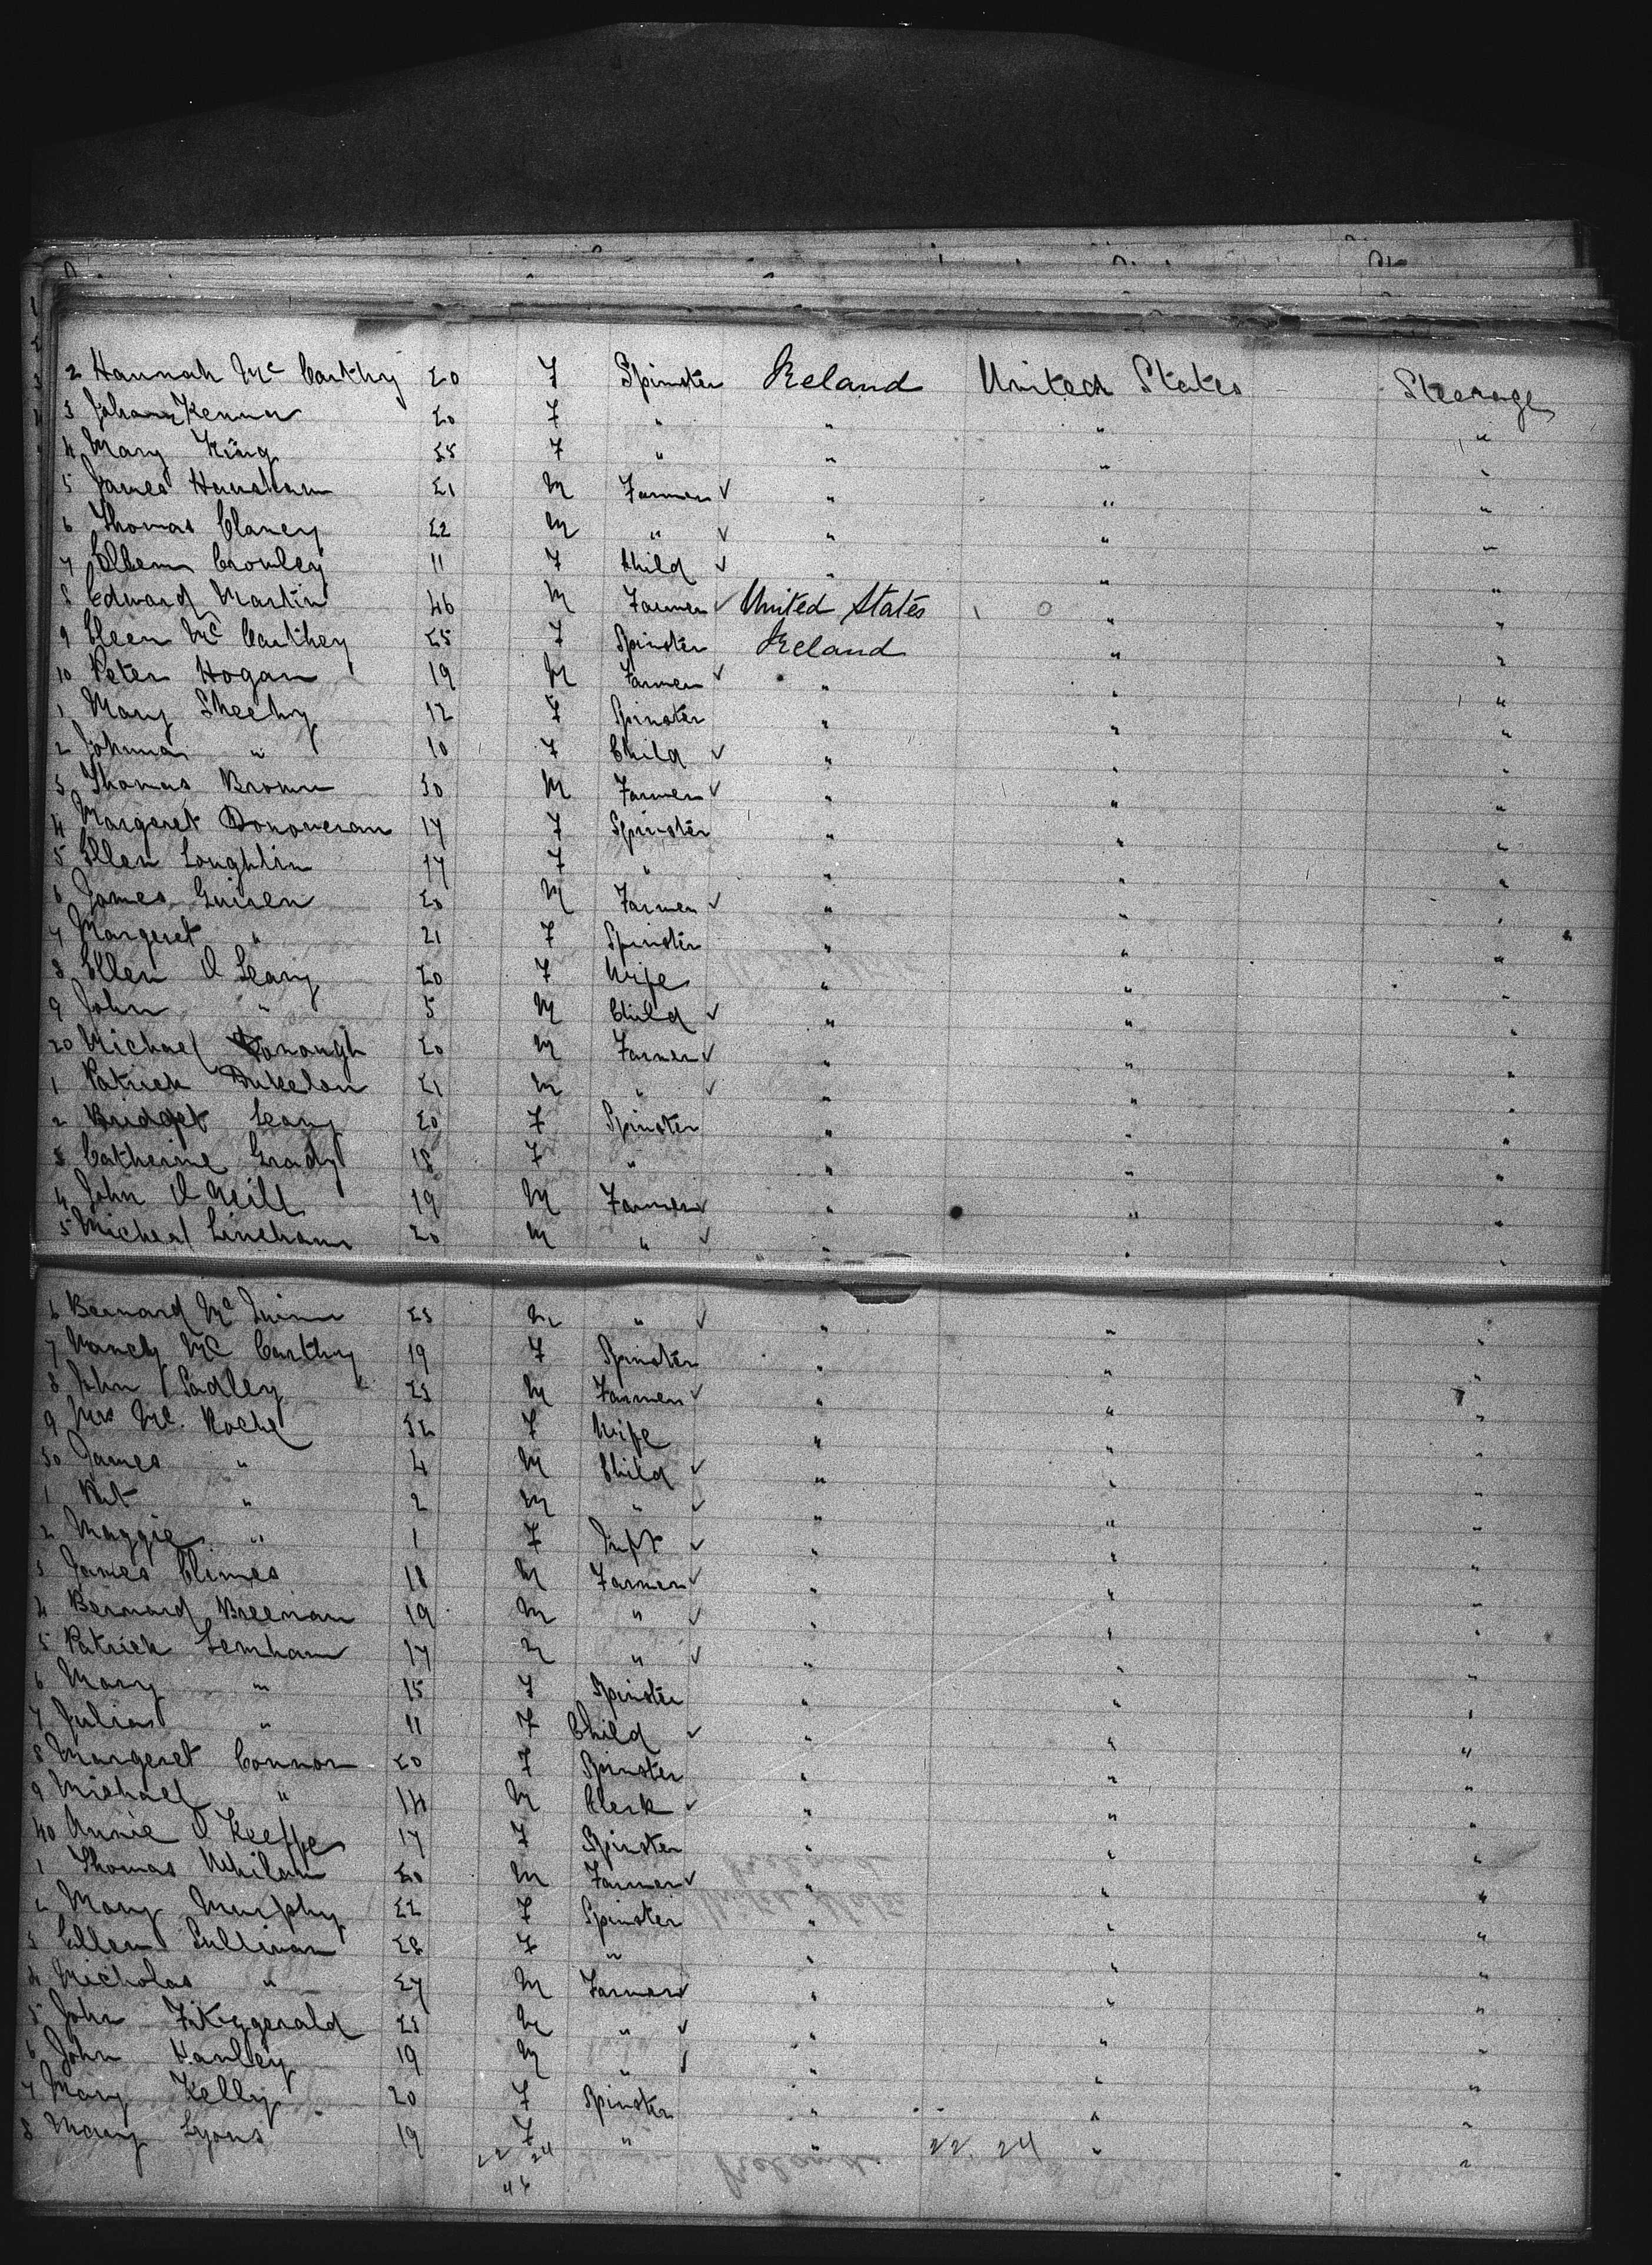 2 Hannah Mc Carthy 20 F Spinster Ireland United States Steerage
3 Johanna Kenna 20 F " " " "
4 Mary King 25 F " " " "
5 James Hanshan 21 M Farmer ✓ " " "
6 Thomas Clancy 22 M " ✓ " " "
7 Ellen Crowley 11 F Child ✓ " " "
8 Edward Martin 46 M Farmer ✓ United States " "
9 Eleen Mc Carthey 25 F Spinster Ireland " "
10 Peter Hogan 19 M Farmer ✓ " " "
1 Mary Sheehy 12 F Spinster " " "
2 Johanna " 10 F Child ✓ " " "
3 Thomas Brown 30 M Farmer ✓ " " "
4 Margeret Donoveran 17 F Spinster " " "
5 Ellen Loughlin 17 F " " " "
6 James Guiren 20 M Farmer ✓ " " "
7 Margeret " 21 F Spinster " " "
8 Ellen O Leary 20 F Wife " " "
9 John " 5 M Child ✓ " " "
20 Michael Donough 20 M Farmer ✓ " " "
1 Patrick Dukelon 21 M " ✓ " " "
2 Bridget Leary 20 F Spinster " " "
3 Catherine Grady 18 F " " " "
4 John O Neill 19 M Farmer ✓ " " "
5 Micheal Lineham 20 M " ✓ " " "
6 Bernard Mc Guinn 23 M " ✓ " " "
7 Nancy Mc Carthy 19 F Spinster " " "
8 John Sadley 23 M Farmer ✓ " " "
9 Mrs Mc. Roche 32 F Wife " " "
30 James " 4 M Child ✓ " " "
1 Pat " 2 M " ✓ " " "
2 Maggie " 1 F Inft ✓ " " "
3 James Climes 18 M Farmer ✓ " " "
4 Bernard Breenan 19 M " ✓ " " "
5 Patrick Lenihan 17 M " ✓ " " "
6 Mary " 15 F Spinster " " "
7 Julia " 11 F Child ✓ " " "
8 Margeret Connor 20 F Spinster " " "
9 Michael " 14 M Clerk ✓ " " "
40 Annie O Keeffe 17 F Spinster " " "
1 Thomas Whilan 20 M Farmer ✓ " " "
2 Mary Murphy 22 F Spinster " " "
3 Ellen Sullivan 28 F " " " "
4 Nicholas " 27 M Farmer ✓ " " "
5 John Fitzgerald 23 M " ✓ " " "
6 John Hanley 19 M " ✓ " " "
7 Mary Kelly 20 F Spinster " " "
8 Mary Lyons 19 F " " " "
22 24 22. 24
46